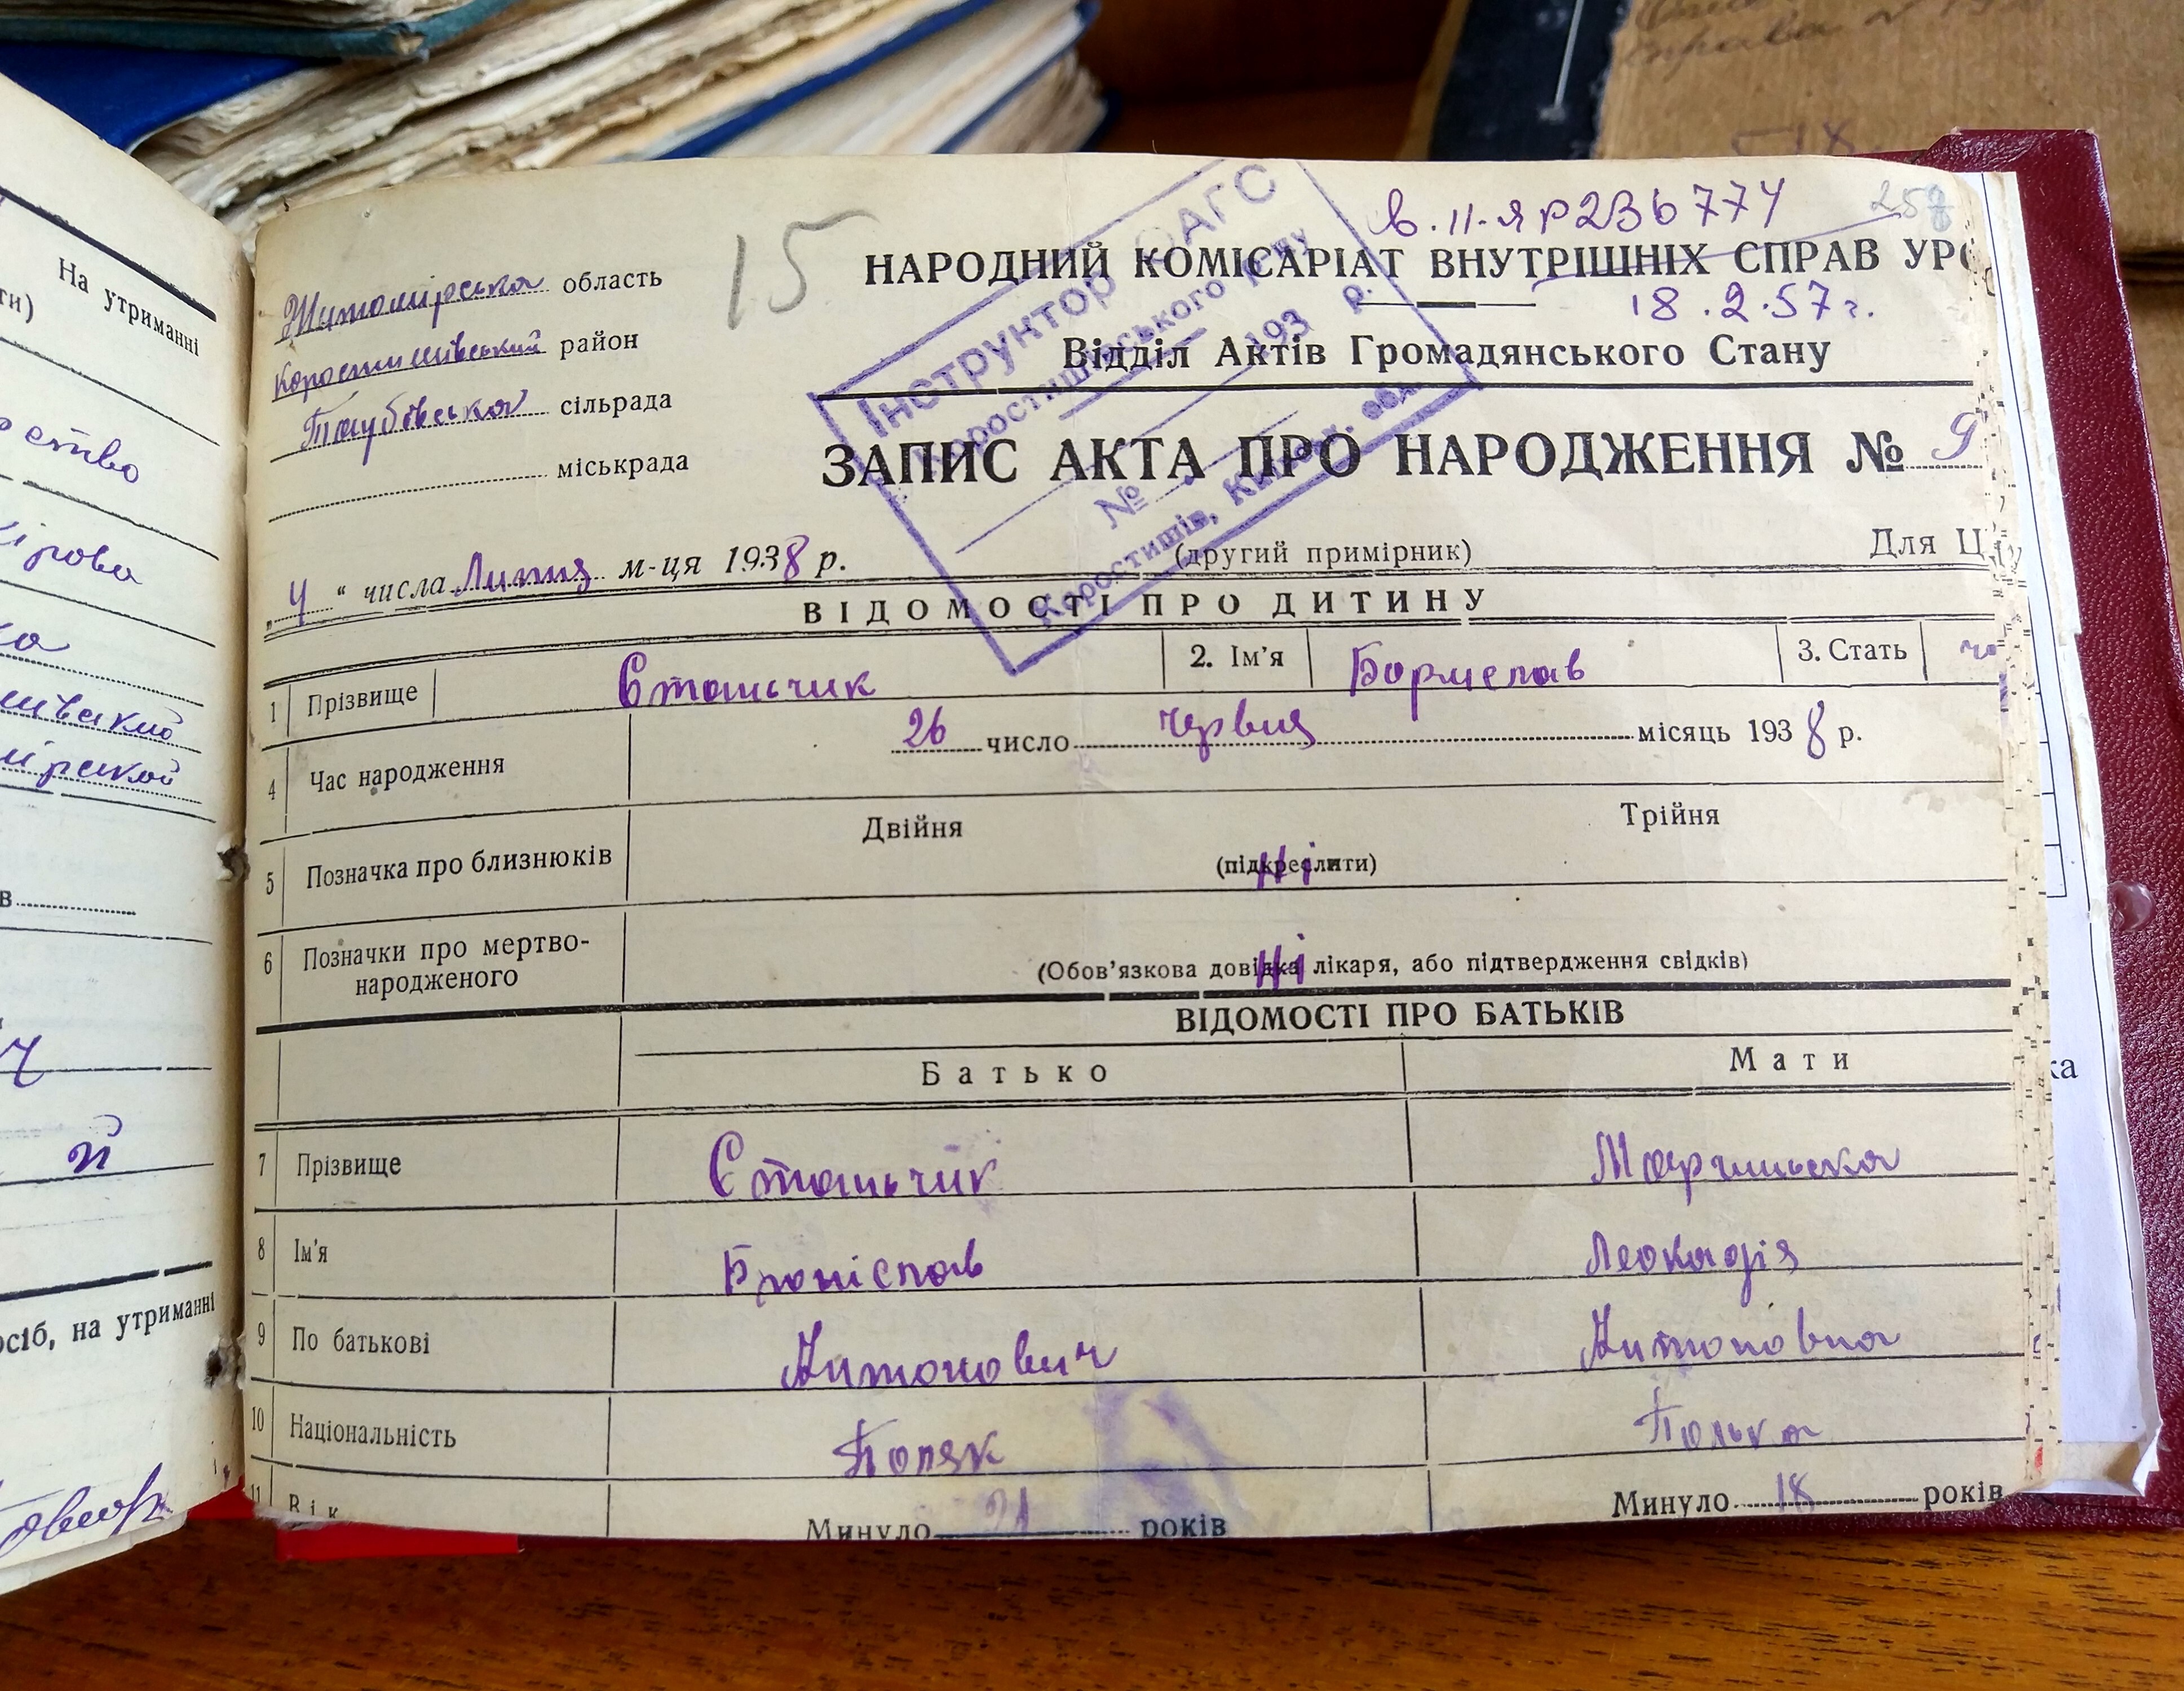 На утриманні
ство
осіб, на утриманні
в. II-ЯР236774
258
15
Житомірська область
НАРОДНИЙ КОМІСАРІАТ ВНУТРІШНІХ СПРАВ УР
Коростишівський район
18.2.57г.
сільрада
Відділ Актів Громадянського Стану
міськрада
Інструктор ОАГС
Коростишівського
193 р.
№
Коростишів, Київськ. обл.
ЗАПИС АКТА ПРО НАРОДЖЕННЯ № 9
„4“ числа Липня м-ця 1938 р.
(другий примірник)
Для Ц
ВІДОМОСТІ ПРО ДИТИНУ
1 Прізвище Стоньчик 2. Ім'я 3. Стать
4 Час народження 26 число червня місяць 1938 р.
5 Позначка про близнюків Двійня Трійня
(підкреслити) Ні
6 Позначки про мертво-
народженого
(Обов'язкова довідка лікаря, або підтвердження свідків) Ні
ВІДОМОСТІ ПРО БАТЬКІВ
Батько Мати
7 Прізвище Стоньчик
8 Ім'я Броніслав Леокадія
9 По батькові Антонович Антоновна
10 Національність Поляк Полька
11 Вік Минуло 21 років Минуло 18 років